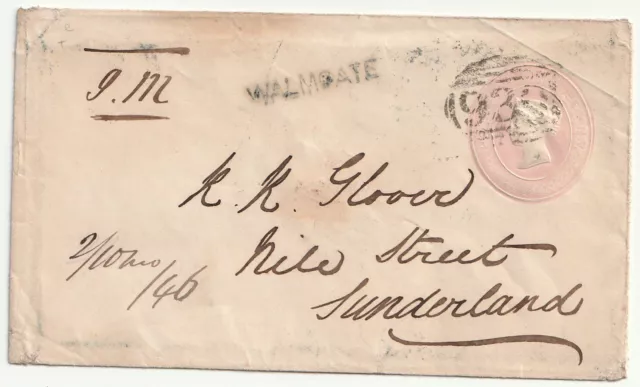 J.M
WALMGATE
K. K. Glover
Nile Street
Sunderland
2/10mo
/46